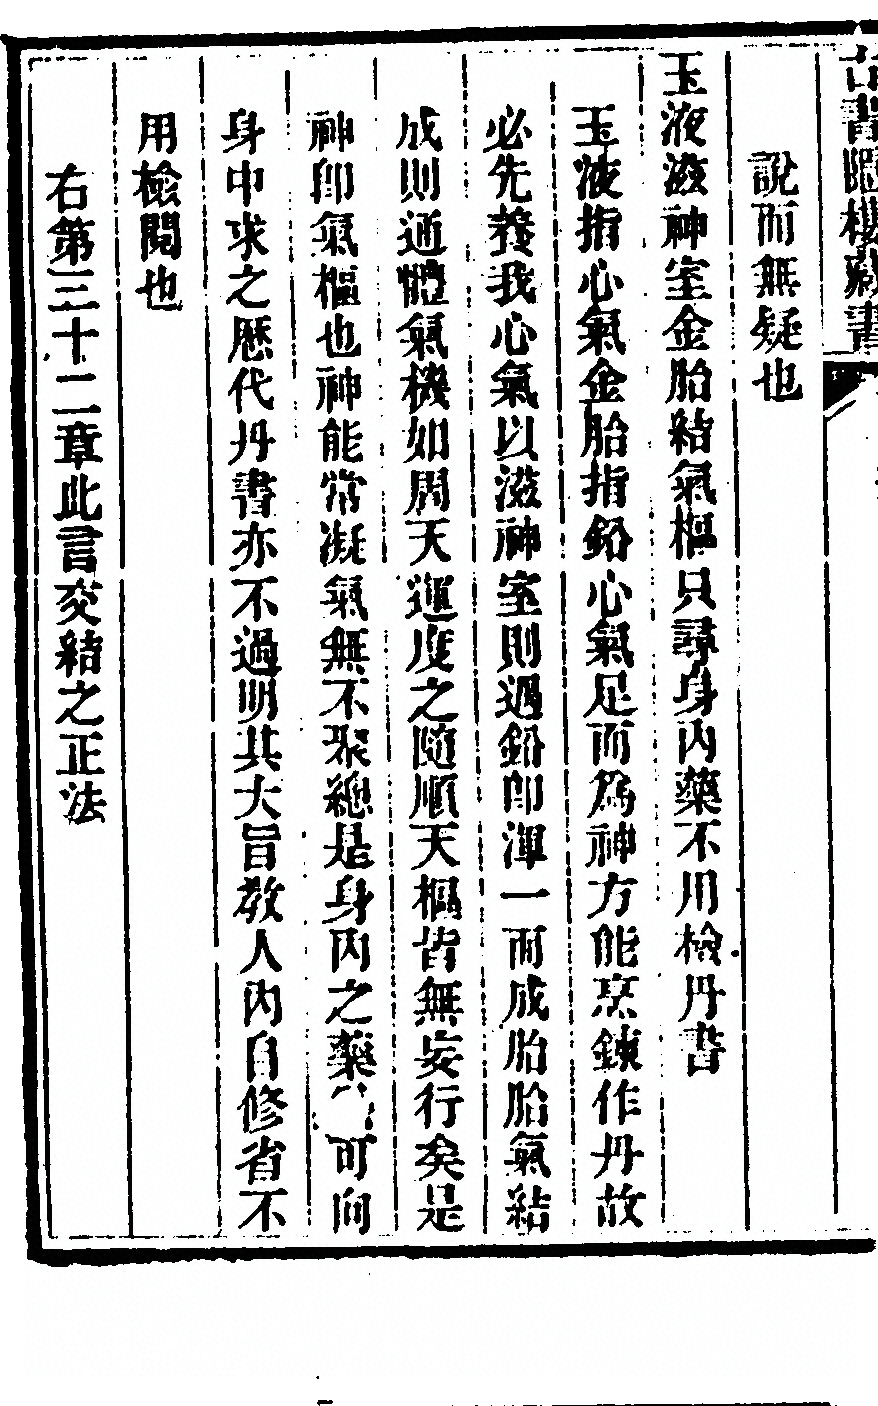 古書隱樓藏書
說而無疑也
玉液滋神室金胎結氣樞只尋身內藥不用檢丹書
玉液指心氣金胎指鉛心氣足而為神方能烹鍊作丹故
必先養我心氣以滋神室則遇鉛即渾一而成胎胎氣結
成則通體氣機如周天運度之隨順天樞皆無妄行矣是
神即氣樞也神能常凝氣無不聚總是身內之藥可向
身中求之歷代丹書亦不過明其大旨教人內自修省不
用檢閱也
右第三十二章此言交結之正法